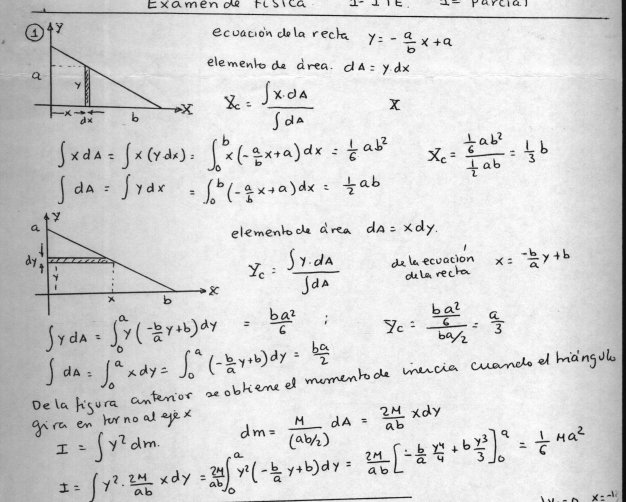 Examen de Física I-ITE 1º parcial
① y
ecuación de la recta y = -a/b x + a
elemento de área. dA = y dx
a y x dx b X
Xc = ∫x·dA / ∫dA X
∫x dA = ∫x(y dx) = ∫₀ᵇ x(-a/b x + a)dx = 1/6 ab² Xc = (1/6 ab²)/(1/2 ab) = 1/3 b
∫dA = ∫y dx = ∫₀ᵇ(-a/b x + a)dx = 1/2 ab
a y
elemento de área dA = x dy.
dy y x b X
Yc = ∫y·dA / ∫dA de la ecuación de la recta x = -b/a y + b
∫y dA = ∫₀ᵃ y(-b/a y + b)dy = ba²/6 ; Yc = (ba²/6)/(ba/2) = a/3
∫dA = ∫₀ᵃ x dy = ∫₀ᵃ(-b/a y + b)dy = ba/2
De la figura anterior se obtiene el momento de inercia cuando el triángulo
gira en torno al eje x
I = ∫y² dm. dm = M/(ab/2) dA = 2M/ab x dy
I = ∫y²·2M/ab x dy = 2M/ab ∫₀ᵃ y²(-b/a y + b)dy = 2M/ab [-b/a y⁴/4 + b y³/3]₀ᵃ = 1/6 Ma²